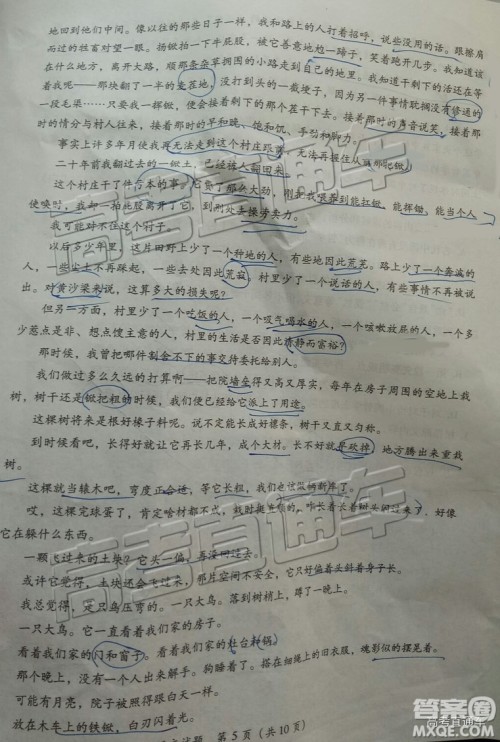 地回到他们中间。像以往的那些日子一样,我和路上的人打着招呼,说些没用的话。跟擦肩
而过的牲畜对望一眼。扬锨拍一下牛屁股,被它善意地尥一蹄子,笑着跑开几步。我知道该
在什么地方,离开大路,顺那条杂草拥围的小路走到自己的地里。我知道干剩下的活还在等
着我呢——那块翻了一半的麦茬地,没打到头的一截埂子,因为另一件事情耽搁没有修通的
一段毛渠……只要我一挥锨,便会接着剩下的那个茬干下去。接着那时的声音说笑,接着那
时的情分与村人往来,接着那时的早和晚、饱和饥、手劲和脚力。
事实上许多年月使我再无法走到这个村庄跟前,无法再握住从前那把锨。
二十年前我翻过去的一锨土,已经被人翻回来。
这个村庄干了件亏本的事。它费了那么大劲,刚把我喂养到能扛锨、能挥锨、能当个人
使唤时,我却一拍屁股离开了它,到别处去操劳卖力。
我可能对不住这个村子。
以后多少年里,这片田野上少了一个种地的人,有些地因此荒芜。路上少了一个奔波的
人,一些尘土不再踩起,一些去处因此荒寂。村里少了一个说话的人,有些事情不再被说
出。对黄沙梁来说,这算多大的损失呢?
但另一方面,村里少了一个吃饭的人,一个吸气喝水的人,一个咳嗽放屁的人,一个多
少惹点是非、想点馊主意的人,村里的生活是否因此清静而富裕?
那时候,我曾把哪件割舍不下的事交持委托给别人。
我们做过多么久远的打算啊——把院墙垒得又高又厚实,每年在房子周围的空地上栽
树,树干还是锨把粗的时候,我们便已经给它派上了用途。
这棵树将来是根好椽子料呢。说不定能长成好檩条,树干又直又匀称。
到时候看吧,长得好就让它再长几年,成个大材。长不好就早砍掉,地方腾出来重栽
树。
这棵就当辕木吧,弯度正合适,等它长粗,我们也该做辆新车了。
哎,这棵完球蛋了,肯定啥材都不成,栽时挺直顺的,咋长着长着树头闪过来了,好像
它在躲什么东西。
一颗飞过来的土块?它头一偏,再没回过去。
或许它觉得,土块还会飞过来,那片空间不安全,它只好偏着头斜着身子长。
我总觉得,是只鸟压弯的。一只大鸟。落到树梢上,蹲了一晚上。
一只大鸟。它一直看着我们家的房子。
看着我们家的门和窗子。看着我们家的灶台和锅。
那个晚上,没有一个人出来解手。狗睡着了。搭在细绳上的旧衣服,魂影似的摆晃着。
可能有月亮,院子被照得跟白天一样。
放在木车上的铁锨,白刃闪着光。
第 5 页(共 10 页)
高考直通车
答案圈
高考直通车